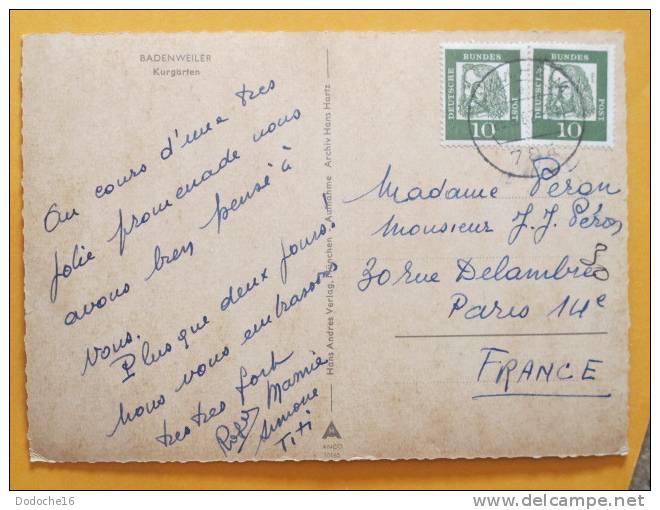 BADENWEILER
Kurgärten
Au cours d'une très
jolie promenade nous
avons bien pensé à
vous.
Plus que deux jours!
Nous vous embrassons
très très fort
Mamie
Simone
Titi
Hans Andres Verlag, München Aufnahme Archiv Hans Hartz
DEUTSCHE BUNDES POST
10
DEUTSCHE BUNDES POST
10
Madame Péron
Monsieur J. J. Péron
30 rue Delambre
Paris 14e
FRANCE
Dodoche16
delcampe.net